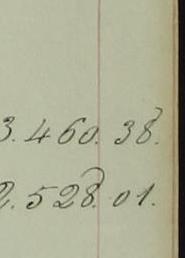 3.460.38.
2.528.01.